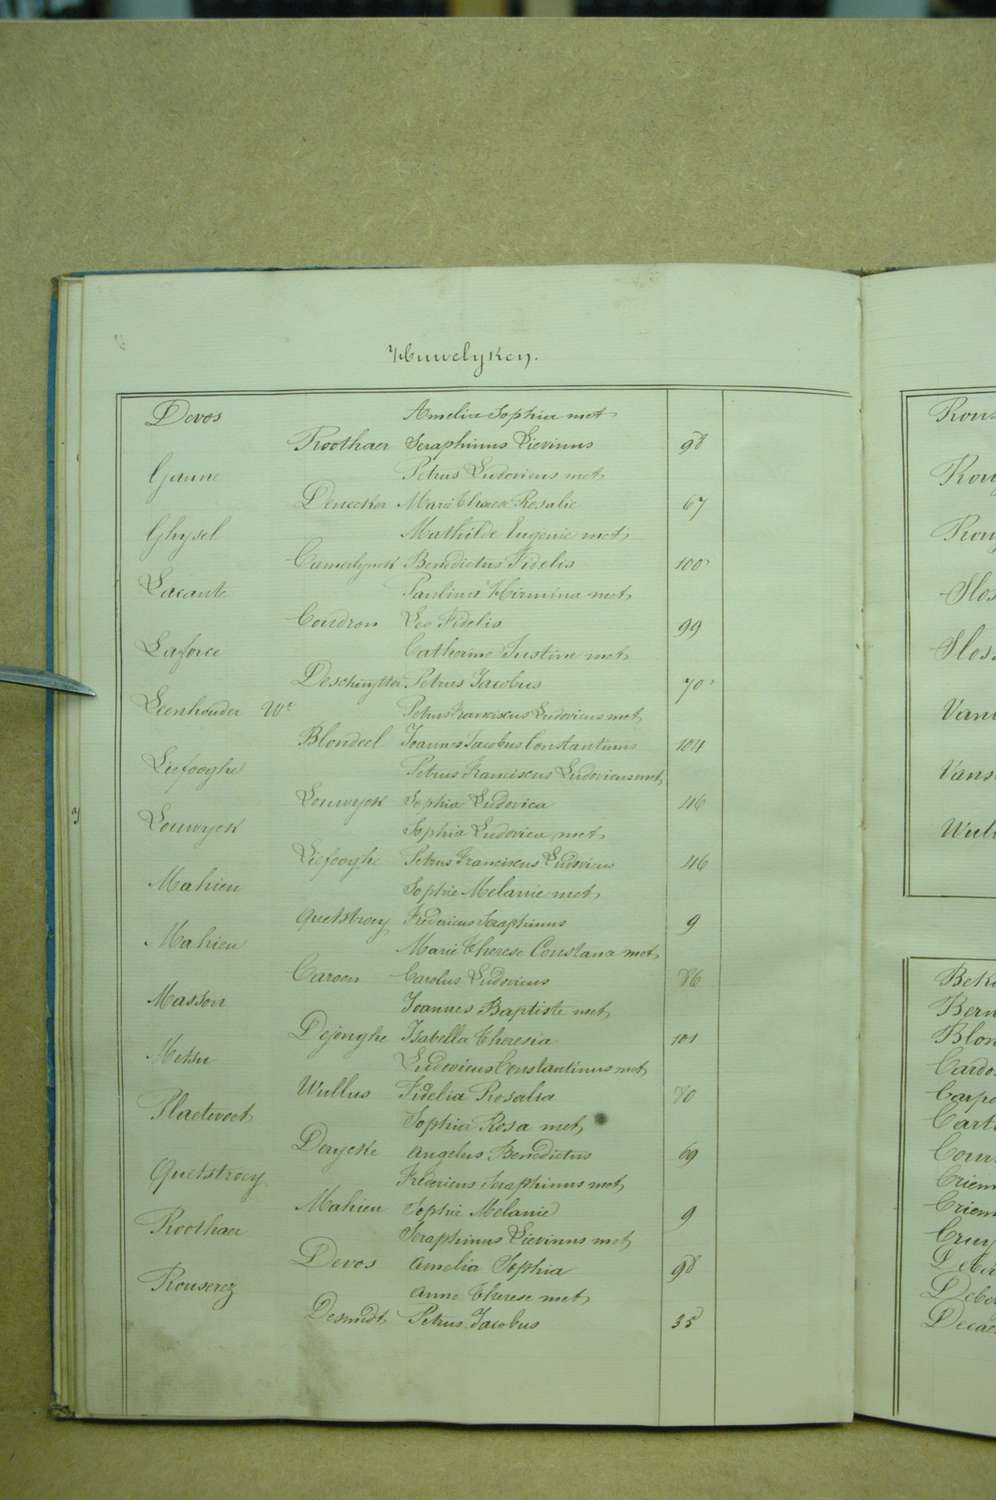 Huwelyken.
Devos Amelia Sophia met
Roothaer Seraphinus Lievinus 98
Ganne Petrus Ludovicus met
Denecker Marie Therese Rosalie 67
Ghysel Mathilde Eugenie met
Camerlynck Benedictus Fidelis 100
Lacante Paulina Hirmina met
Coudron Leo Fidelis 99
Laforce Catharine Justine met
Petrus Jacobus 70
Leenhouder We Petrus Franciscus Ludovicus met
Blondeel Joannes Jacobus Constantinus 104
Liefooghe Petrus Franciscus Ludovicus met
Louwyck Sophia Ludovica 46
Louwyck Sophia Ludovica met
Liefooghe Petrus Franciscus Ludovicus 46
Mahieu Sophie Melanie met
Quetstroey Fredericus Seraphinus 9
Mahieu Marie Therese Constana met
Caroen Carolus Ludovicus 86
Masson Joannes Baptiste met
Dejonghe Isabella Theresia 101
Messu Ludovicus Constantinus met
Wullus Fidelia Rosalia 70
Plaetevoet Sophia Rosa met
Derycke Angelus Benedictus 69
Quetstroey Fredericus Seraphinus met
Mahieu Sophie Melanie 9
Roothaer Seraphinus Lievinus met
Devos Amelia Sophia 98
Rouserez Anne Therese met
Desmidt Petrus Jacobus 35
Rous
Rouy
Rouy
Slos
Slos
Vans
Wull
Beke
Bern
Blon
Cardo
Carpe
Cart
Cour
Criem
Criem
Cruy